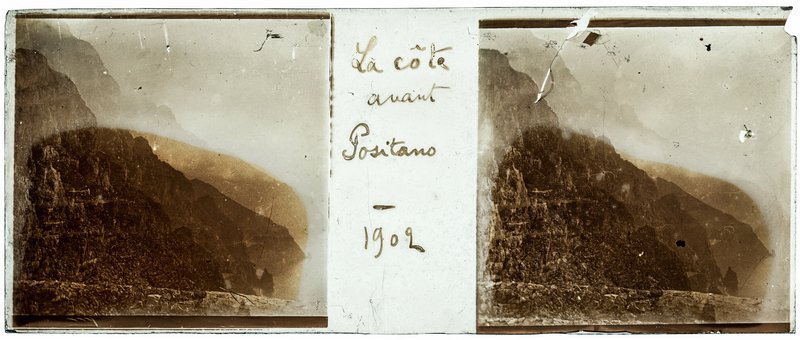 La côte
avant
Positano
–
1902